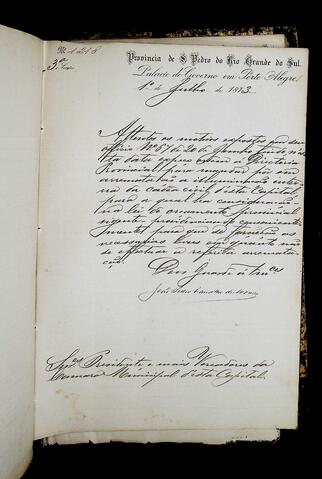 Nº 1218
3ª Secção
Provincia de S. Pedro do Rio Grande do Sul.
Palacio do Governo em Porto Alegre,
1º de Julho de 1873.
Attentos os motivos expostos em seu
officio Nº 67 de 20 de Junho findo,
data expeço ordem á Directoria
Provincial para
arrematação a illuminação exter-
na da cadêa civil d'esta Capital,
para a qual ha consignação
na lei do orçamento provincial
vigente,
para que se
necessarias luzes em quanto não
se effectuar a referida arremata-
ção.
Deus Guarde a Vmces
João Pedro Carvalho de Moraes
Snres Presidente e mais Vereadores da
Camara Municipal d'esta Capital.